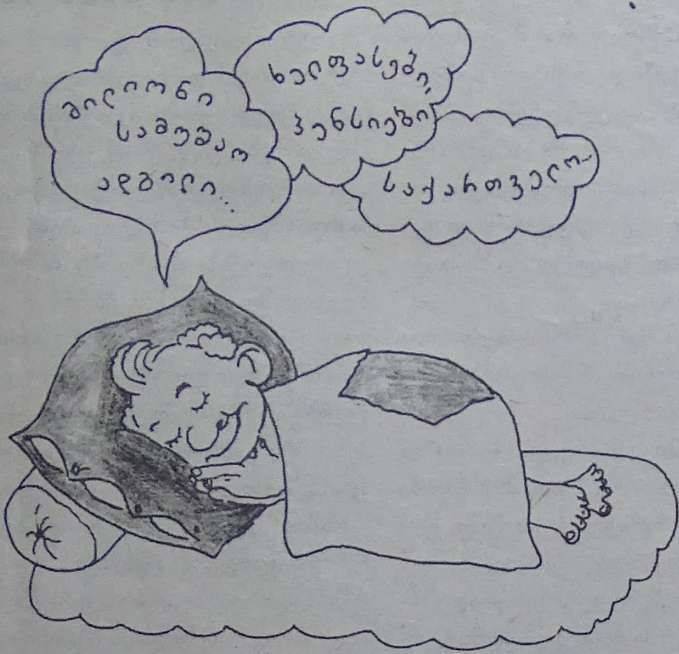 მილიონი
სამუშაო
ადგილი...
ხელფასები,
პენსიები
საქართველო...